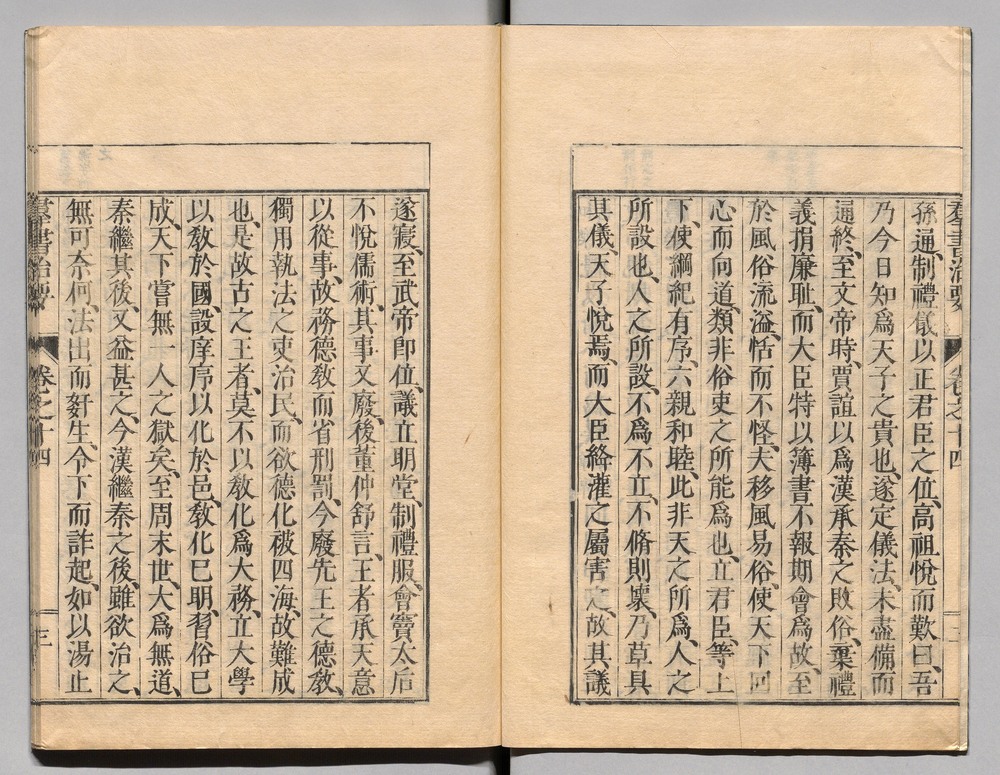 羣書治要 卷之十四
孫通、制禮儀以正君臣之位、高祖悅而歎曰、吾
乃今日知爲天子之貴也、遂定儀法、未盡備而
通終、至文帝時、賈誼以爲漢承秦之敗俗、棄禮
義、捐廉耻、而大臣特以簿書不報期會爲故、至
於風俗流溢、恬而不怪、夫移風易俗、使天下回
心而向道、類非俗吏之所能爲也、立君臣、等上
下、使綱紀有序、六親和睦、此非天之所爲、人之
所設也、人之所設、不爲不立、不脩則壞、乃草具
其儀、天子悅焉、而大臣絳灌之屬害之、故其議
遂寑、至武帝卽位、議立明堂、制禮服、會竇太后
不悅儒術、其事又廢、後董仲舒言、王者承天意
以從事、故務德敎而省刑罰、今廢先王之德敎、
獨用執法之吏治民、而欲德化被四海、故難成
也、是故古之王者、莫不以敎化爲大務、立大學
以敎於國、設庠序以化於邑、敎化已明、習俗已
成、天下嘗無一人之獄矣、至周末世、大爲無道、
秦繼其後、又益甚之、今漢繼秦之後、雖欲治之、
無可奈何、法出而姧生、令下而詐起、如以湯止
羣書治要 卷之十四 三